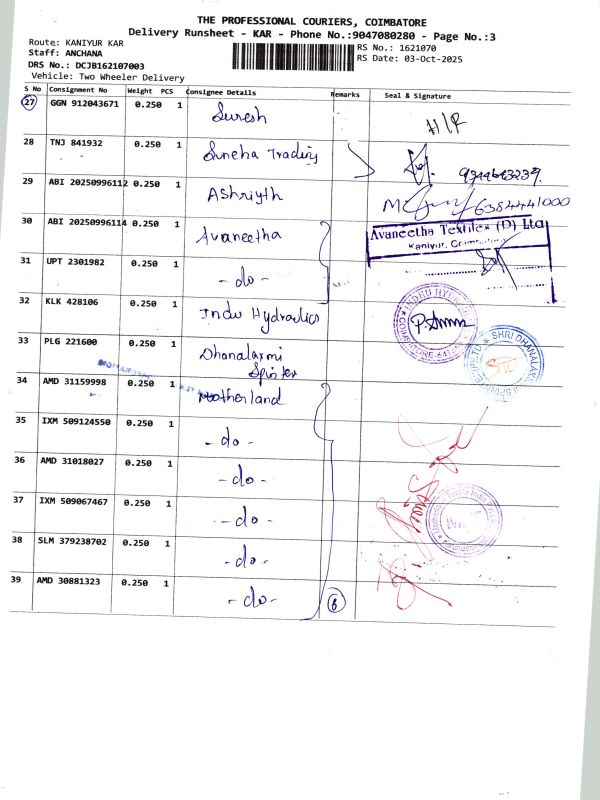 THE PROFESSIONAL COURIERS, COIMBATORE
Delivery Runsheet - KAR - Phone No.:9047080280 - Page No.:3
Route: KANIYUR KAR
RS No.: 1621070
Staff: ANCHANA
RS Date: 03-Oct-2025
DRS No.: DCJB162107003
Vehicle: Two Wheeler Delivery
S No Consignment No Weight PCS Consignee Details Remarks Seal & Signature
27 GGN 912043671 0.250 1 Suresh H/R
28 TNJ 841932 0.250 1 Sneha Trading
29 ABI 20250996112 0.250 1 Ashriyth 6384441000
30 ABI 20250996114 0.250 1 Avaneetha
Avaneetha Textiles (P) Ltd
Kaniyur, Coimbatore
31 UPT 2301982 0.250 1 - do -
32 KLK 428106 0.250 1 Indu Hydraulics
33 PLG 221600 0.250 1 Dhanalaxmi
Spintex
34 AMD 31159998 0.250 1 Motherland
35 IXM 509124550 0.250 1 - do -
36 AMD 31018027 0.250 1 - do -
37 IXM 509067467 0.250 1 - do -
38 SLM 379238702 0.250 1 - do -
39 AMD 30881323 0.250 1 - do - 6